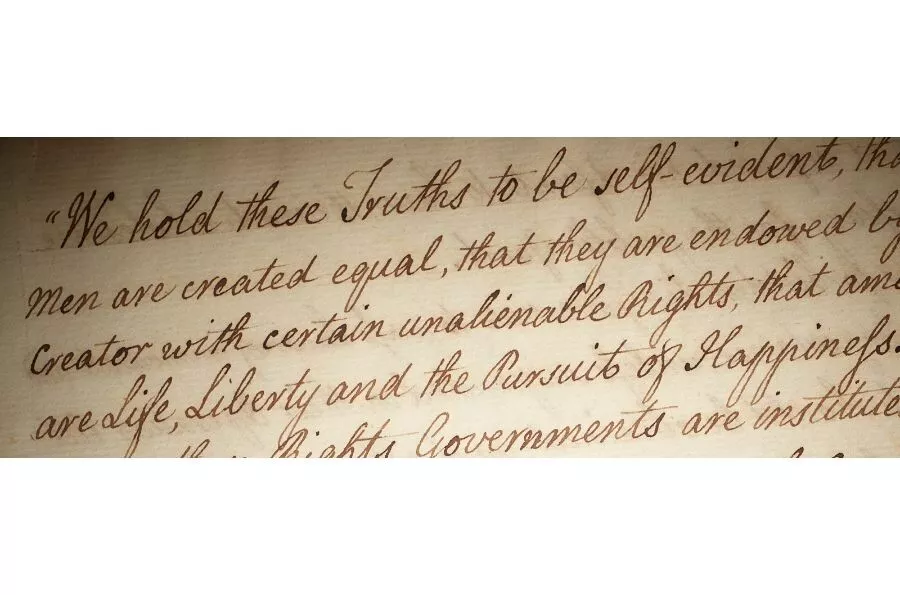 “We hold these Truths to be self-evident, tha
Men are created equal, that they are endowed by
Creator with certain unalienable Rights, that am
are Life, Liberty and the Pursuit of Happineſs.
Rights Governments are institute